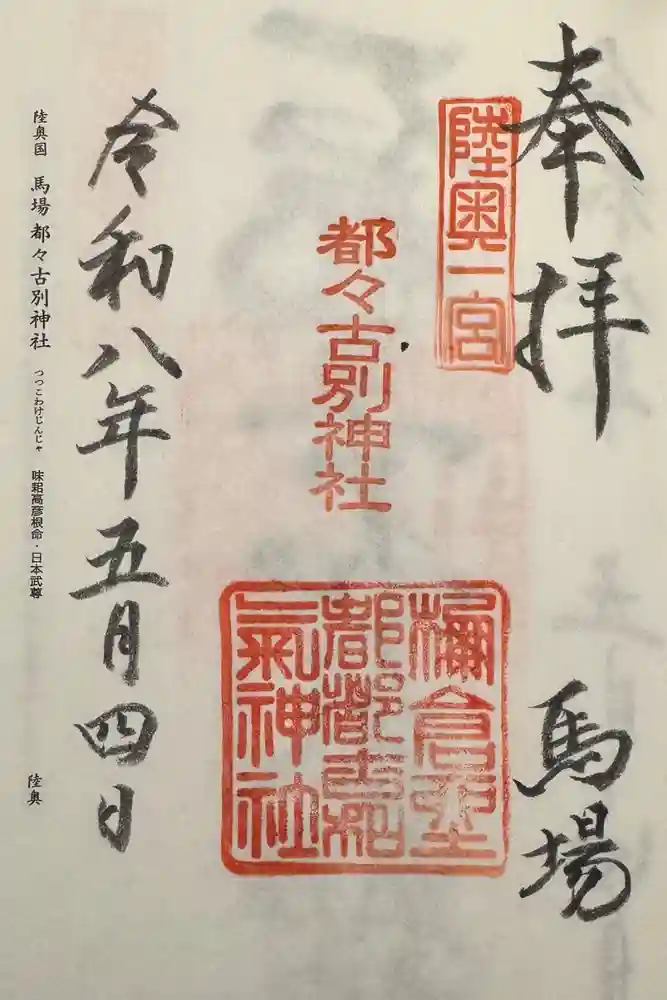 奉拝 馬場
陸奥一宮
都々古別神社
棚倉
都都古和
氣神社
令和八年五月四日
陸奥国 馬場都々古別神社 つつこわけじんじゃ 味耜高彦根命・日本武尊 陸奥